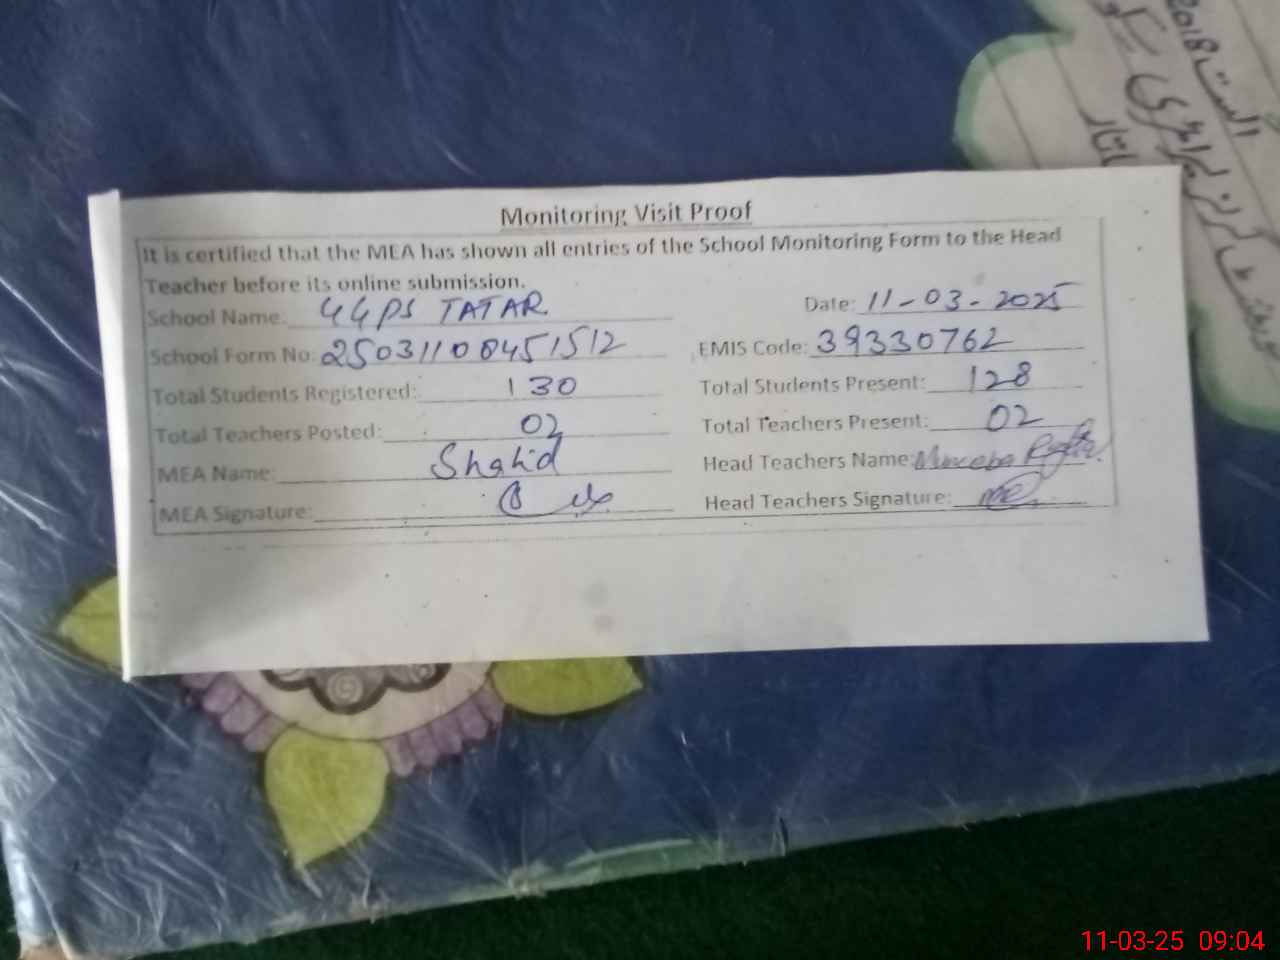 2018 الست
گورنمنٹ گرلز پرائمری سکول
تاتار
Monitoring Visit Proof
It is certified that the MEA has shown all entries of the School Monitoring Form to the Head
Teacher before its online submission.
School Name: GGPS TATAR Date: 11-03-2025
School Form No: 25031108451512 EMIS Code: 39330762
Total Students Registered: 130 Total Students Present: 128
Total Teachers Posted: 02 Total Teachers Present: 02
MEA Name: Shahid Head Teachers Name:
MEA Signature: Head Teachers Signature:
11-03-25 09:04